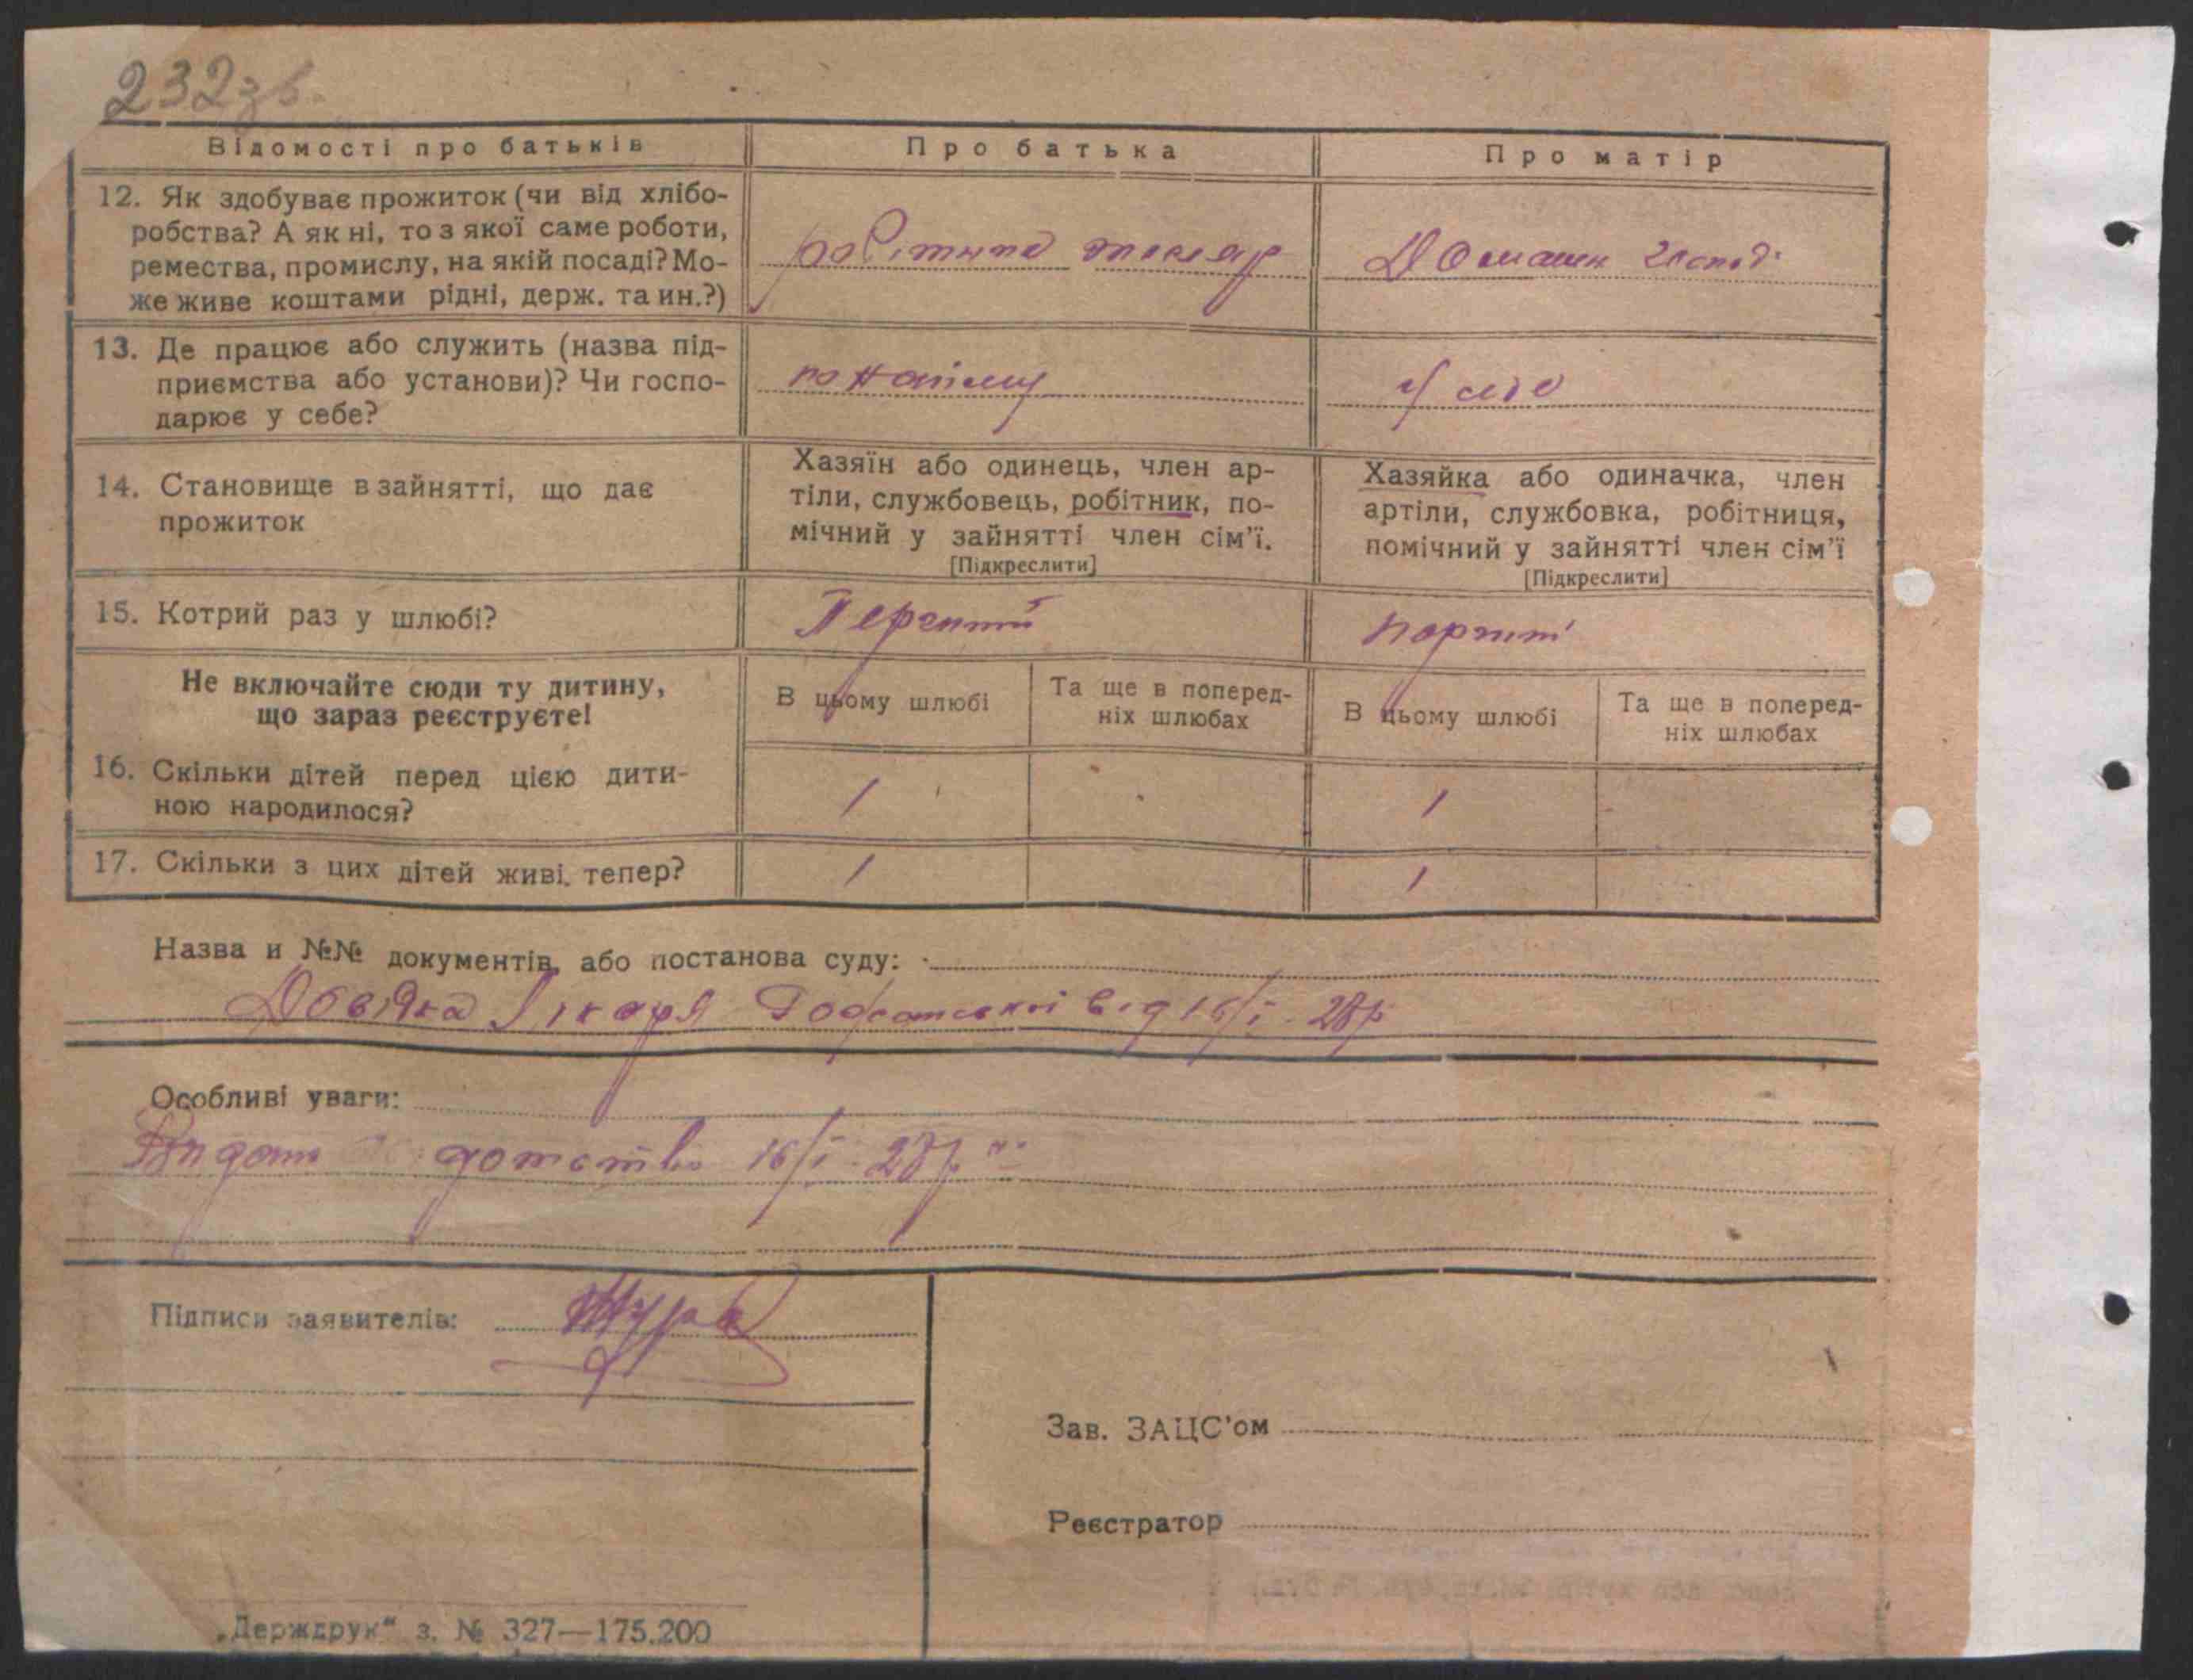 232 зв.
Відомості про батьків
Про батька
Про матір
12. Як здобуває прожиток (чи від хлібо-
робства? А як ні, то з якої саме роботи,
ремества, промислу, на якій посаді? Мо-
же живе коштами рідні, держ. та ин.?)
токар
Домашн господ.
13. Де працює або служить (назва під-
приємства або установи)? Чи госпо-
дарює у себе?
по найму
У себе
14. Становище в зайнятті, що дає
прожиток
Хазяїн або одинець, член ар-
тіли, службовець, робітник, по-
мічний у зайнятті член сім'ї.
[Підкреслити]
Хазяйка або одиначка, член
артіли, службовка, робітниця,
помічний у зайнятті член сім'ї
[Підкреслити]
15. Котрий раз у шлюбі?
Перший
Не включайте сюди ту дитину,
що зараз реєструєте!
В цьому шлюбі
Та ще в поперед-
ніх шлюбах
В цьому шлюбі
Та ще в поперед-
ніх шлюбах
16. Скільки дітей перед цією дити-
ною народилося?
1
1
17. Скільки з цих дітей живі тепер?
1
1
Назва и №№ документів, або постанова суду:
Довідка Лікаря від 16/I-28р
Особливі уваги:
16/I-28р
Підписи заявителів:
Зав. ЗАЦС'ом
Реєстратор
„Держдрук" з. № 327—175.200